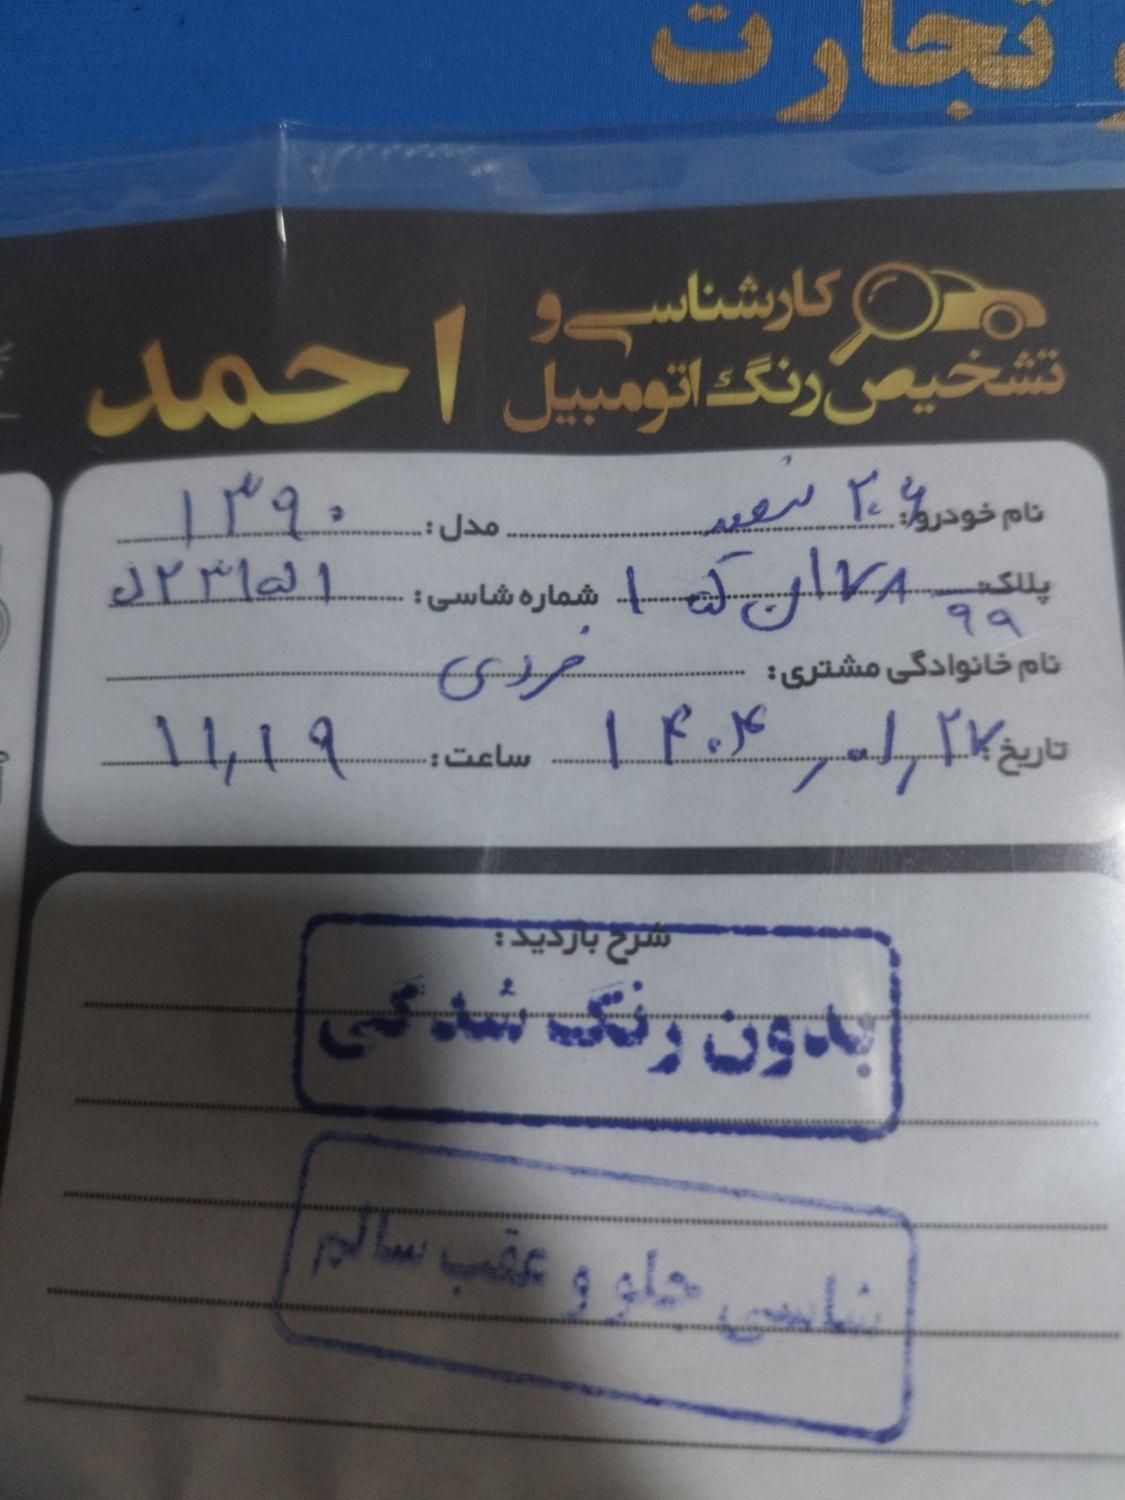 تجارت
کارشناسی و
تشخیص رنگ اتومبیل
احمد
نام خودرو: ۲۰۶ سفید مدل: ۱۳۹۰
پلاک: ۹۹ شماره شاسی:
نام خانوادگی مشتری:
تاریخ: ۱۴۰۴,۰۱,۲۷ ساعت: ۱۱,۱۹
شرح بازدید:
بدون رنگ شدگی
شاسی جلو و عقب سالم